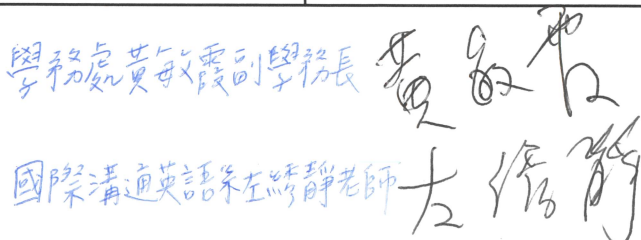 學務處黃敏霞副學務長 黃敏霞
國際溝通英語系左綉靜老師 左綉靜